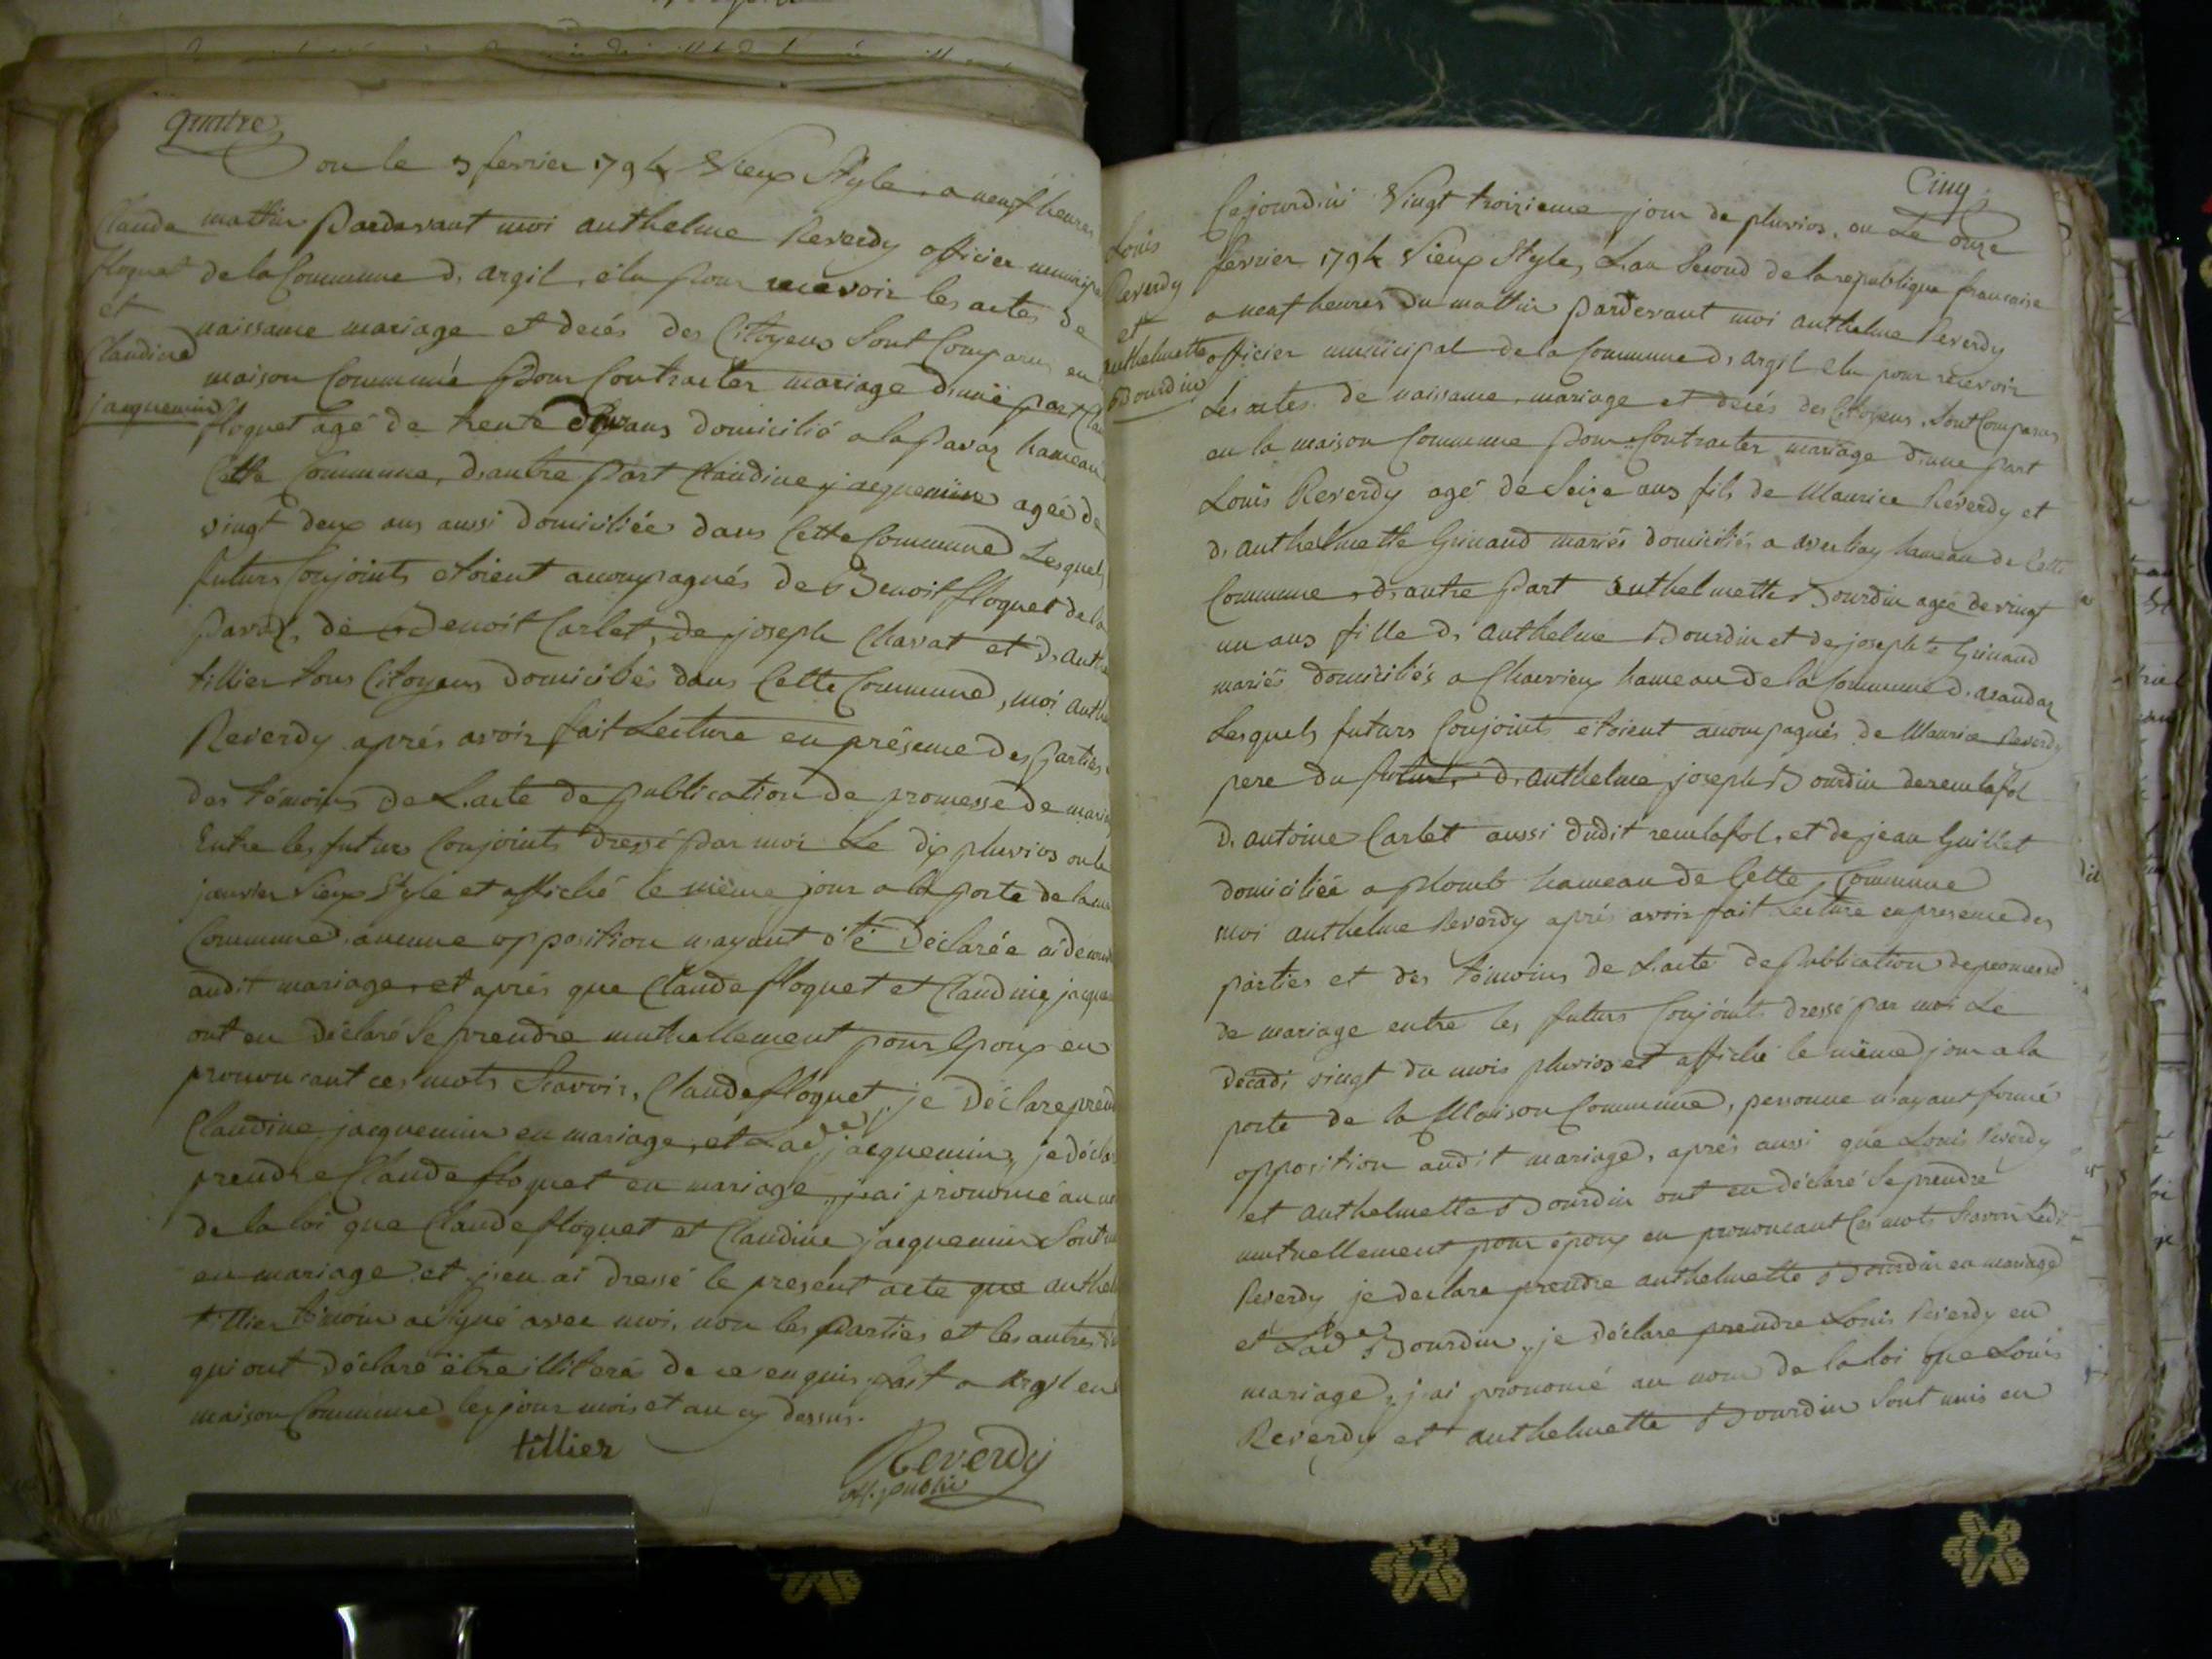 quatre
ou le 3 fevrier 1794 Vieux Style, a neuf heures
mattin Pardevant moi anthelme Reverdy officier municip
de la Commune d'argil, élu pour recevoir les actes de
naissance mariage et decés des Citoyens Sont Comparus en
maison Commune Pour Contracter mariage d'une part Cla
floquet agé de trente ans domicilié a la Pavaz hameau
Cette Commune, d'autre Part Claudine jacquemine agée de
vingt deux ans aussi domiciliée dans Cette Commune Lesquels
futurs Conjoints etoient accompagnés de Benoit floquet de la
Pavaz, de Benoit Carlet, de joseph Chavat et d'anth
tillier tous Citoyens domiciliés dans Cette Commune, moi anth
Reverdy aprés avoir fait Lecture en présence des Parties
des témoins de L'acte de Publication de promesse de maria
Entre les futurs Conjoints dressé Par moi Le dix pluvios ou le
janvier Vieux Style et affiché le même jour a la porte de la
Commune, aucune opposition n'ayant été déclarée
audit mariage et aprés que Claude floquet et Claudine jacque
ont eu déclaré Se prendre muthellement pour Epoux en
prononcant ces mots Scavoir, Claude floquet, je Déclare prend
Claudine jacquemin en mariage, et Lade jacquemin, je décla
prendre Claude floquet en mariage, j'ai prononcé au
de la loi que Claude floquet et Claudine jacquemin Sont
en mariage et j'en ai dressé le present acte que anthel
tillier témoin a Signé avec moi, non les Parties et les autres
qui ont déclaré être illiteré de ce enquis fait a Argil en
maison Commune les jour mois et an cy dessus.
tillier
Reverdy
off. public
Claude
floquet
et
Claudine
jacquemin
Cinq
Cejourd'ui Vingt troizieme jour de pluvios, ou Le onze
fevrier 1794 Vieux Style, L'an Second de la republique francaise
a neuf heures du mattin pardevant moi anthelme Reverdy
officier municipal de la Commune d'argil elu pour recevoir
Les actes de naissance, mariage et decés des Citoyens, Sont Comparus
en la maison Commune Pour Contracter mariage d'une part
Louis Reverdy agé de Seize ans fils de Maurice Reverdy et
d'anthelmette Guinand mariés domiciliés a hameau de Cette
Commune, d'autre Part anthelmette Bourdin agée de vingt
un ans fille d'anthelme Bourdin et de josephte Guinand
mariés domiciliés a Charvieux hameau de la Commune d'arandaz
Lesquels futurs Conjoints etoient accompagnés de Maurice Reverdy
pere du futur, d'anthelme joseph Bourdin de remlafol
d'antoine Carlet aussi dudit remlafol, et de jean Guillet
domiciliée a Plomb hameau de Cette Commune
moi anthelme Reverdy aprés avoir fait Lecture en presence des
parties et des témoins de L'acte de Publication de promesse
de mariage entre les futurs Conjoints dressé par moi Le
décadi vingt du mois pluvios et affiché le même jour a la
porte de la Maison Commune, personne n'ayant formé
opposition audit mariage, aprés aussi que Louis Reverdy
et anthelmette Bourdin ont eu déclaré Se prendre
mutuellement pour époux en prononcant Ces mots Scavoir Ledit
Reverdy, je declare prendre anthelmette Bourdin en mariage
et Lade Bourdin, je déclare prendre Louis Reverdy en
mariage, j'ai prononcé au nom de la loi que Louis
Reverdy et anthelmette Bourdin Sont unis en
Louis
Reverdy
et
anthelmette
Bourdin